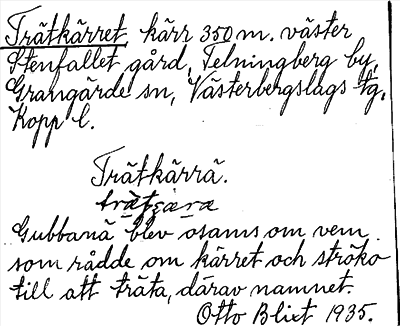 Trätkärret kärr 350 m. väster
Stenfallet gård, Telningberg by,
Grangärde sn, Västerbergslags tg,
Kopp l.
Trätkärrä.
trätȿära
Gubbanä blev osams om vem
som rådde om kärret och ströko
till att träta, därav namnet.
Otto Blixt 1935.